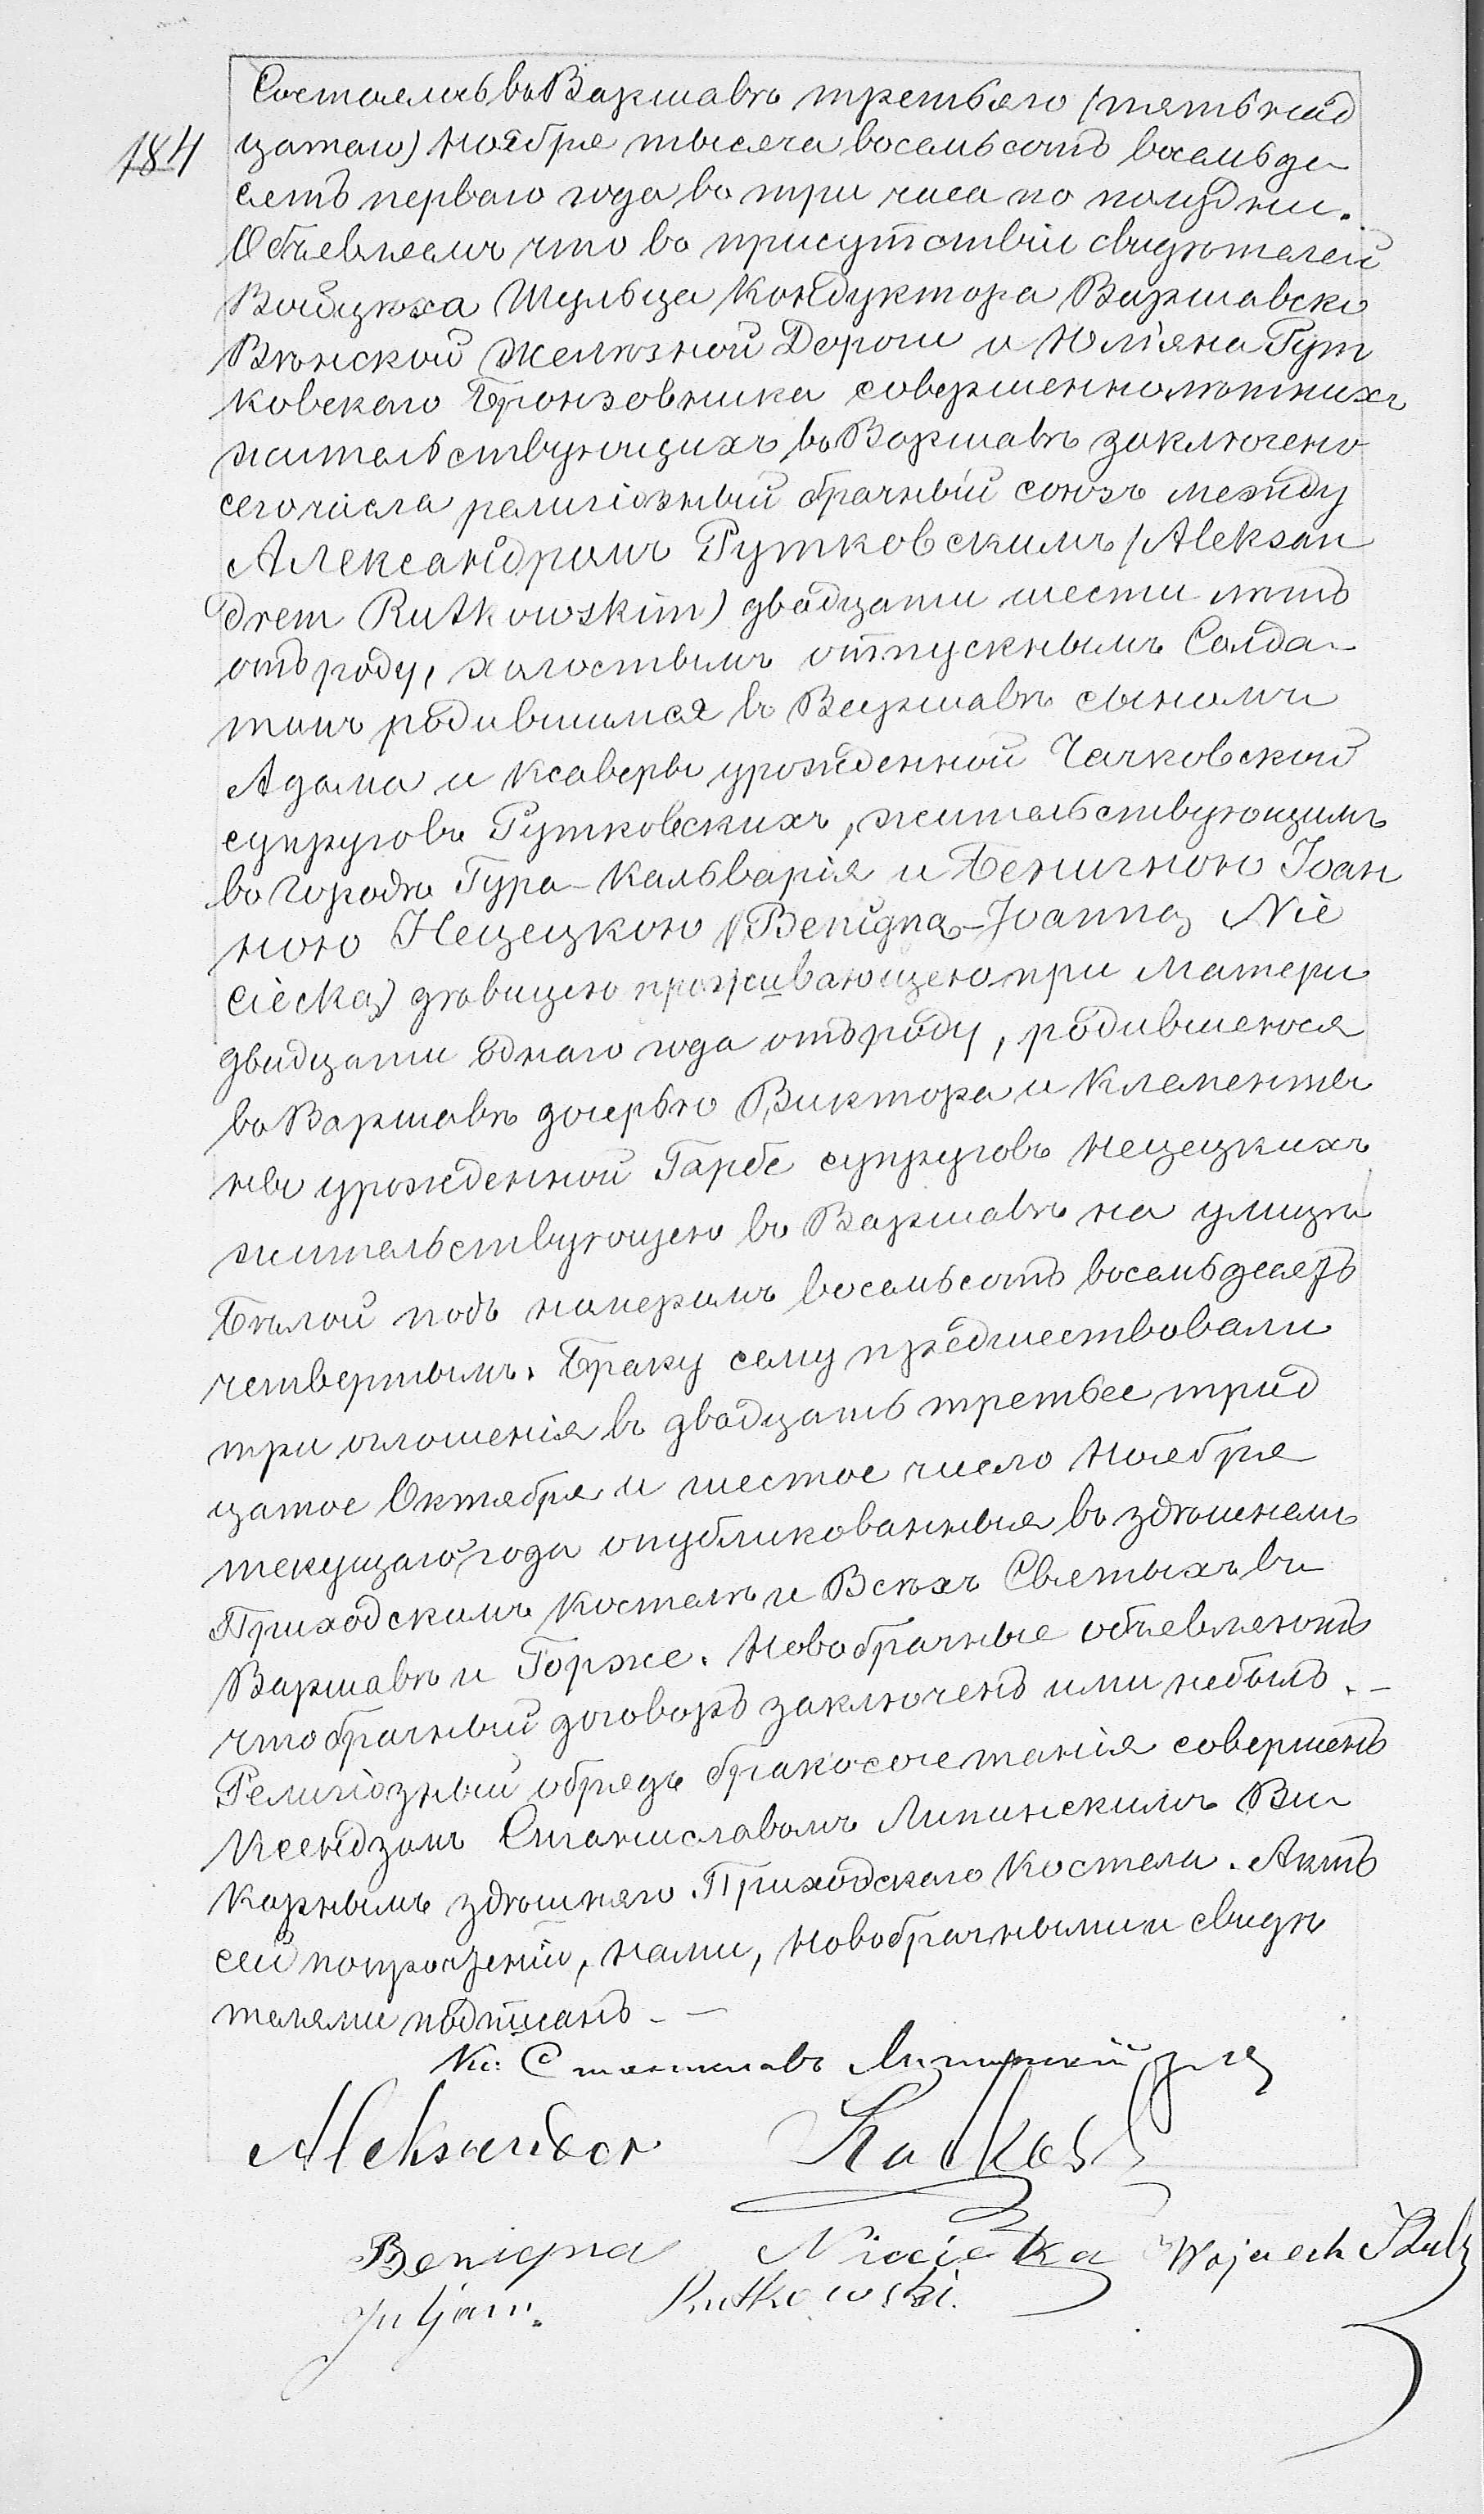 184
Состоялось въ Варшавѣ третьяго (пятьнад
цатаго) Ноября тысяча восемьсотъ восемьде
сятъ перваго года въ три часа по полудни.
Объявляемъ что въ присутствіи свидѣтелей
Войцѣха Шульца Кондуктора Варшавско
Вѣнской Желѣзной Дороги и Юліяна Рут
ковскаго Бронзовника совершеннолѣтнихъ
жительствующихъ въ Варшавѣ заключено
сего числа религіозный брачный союзъ между
Александромъ Рутковскимъ (Aleksan
drem Rutkowskim) двадцати шести лѣтъ
отъ роду, холостымъ отпускнымъ Солда-
томъ родившимся въ Варшавѣ сыномъ
Адама и Ксаверы урожденной Чачковской
супруговъ Рутковскихъ, жительствующимъ
въ городѣ Гура-Кальварія и Бенигною Іоан
ною Нецецкою (Benigna-Joanna Nie
ciecka) дѣвицею проживающею при матери
двадцати одного года отъ роду, родившеюся
въ Варшавѣ дочерью Виктора и Клементы
ны урожденной Гарбе супруговъ Нецецкихъ
жительствующею въ Варшавѣ на улицѣ
Бѣлой подъ номеромъ восемьсотъ восемьдесятъ
четвертымъ. Браку сему предшествовали
три оглошенія въ двадцать третьее трид
цатое Октября и шестое число Ноября
текущаго года опубликованныя въ здѣшнемъ
Приходскомъ Костелѣ и Всѣхъ Святыхъ въ
Варшавѣ и Горже. Новобрачные объявляютъ
что брачный договоръ заключенъ ими небылъ. -
Религіозный обрядъ бракосочетанія совершенъ
Ксендзомъ Станиславомъ Липинскимъ Ви
карнымъ здѣшняго Приходскаго Костела. Актъ
сей попрочтеніи, нами, новобрачными и свидѣ
телями подписанъ - —
Кс: Станиславъ Липинскій
Aleksander
Benigna Niciecka Wojciech Szulz
Juljan. Rutkowski.